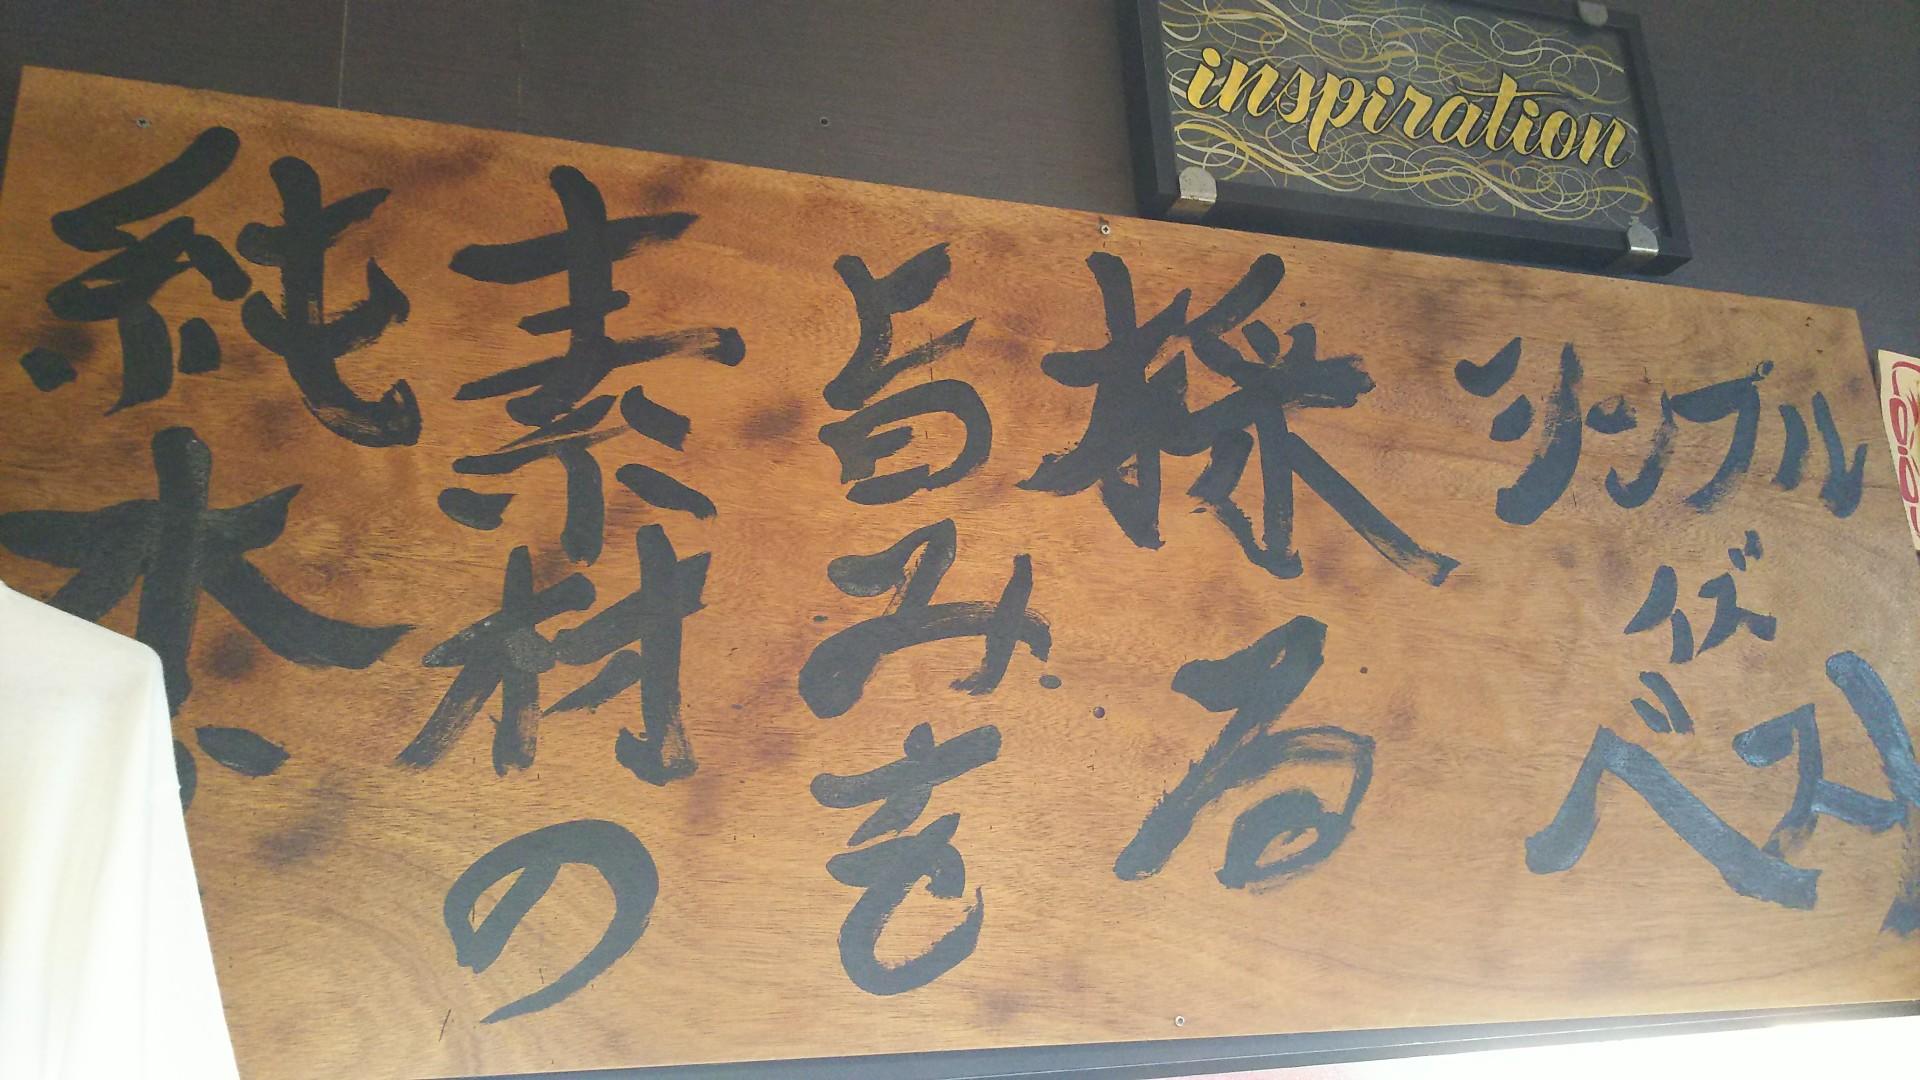 inspiration
純水
素材の
旨みを
採る
シンプル
イズ
ベスト